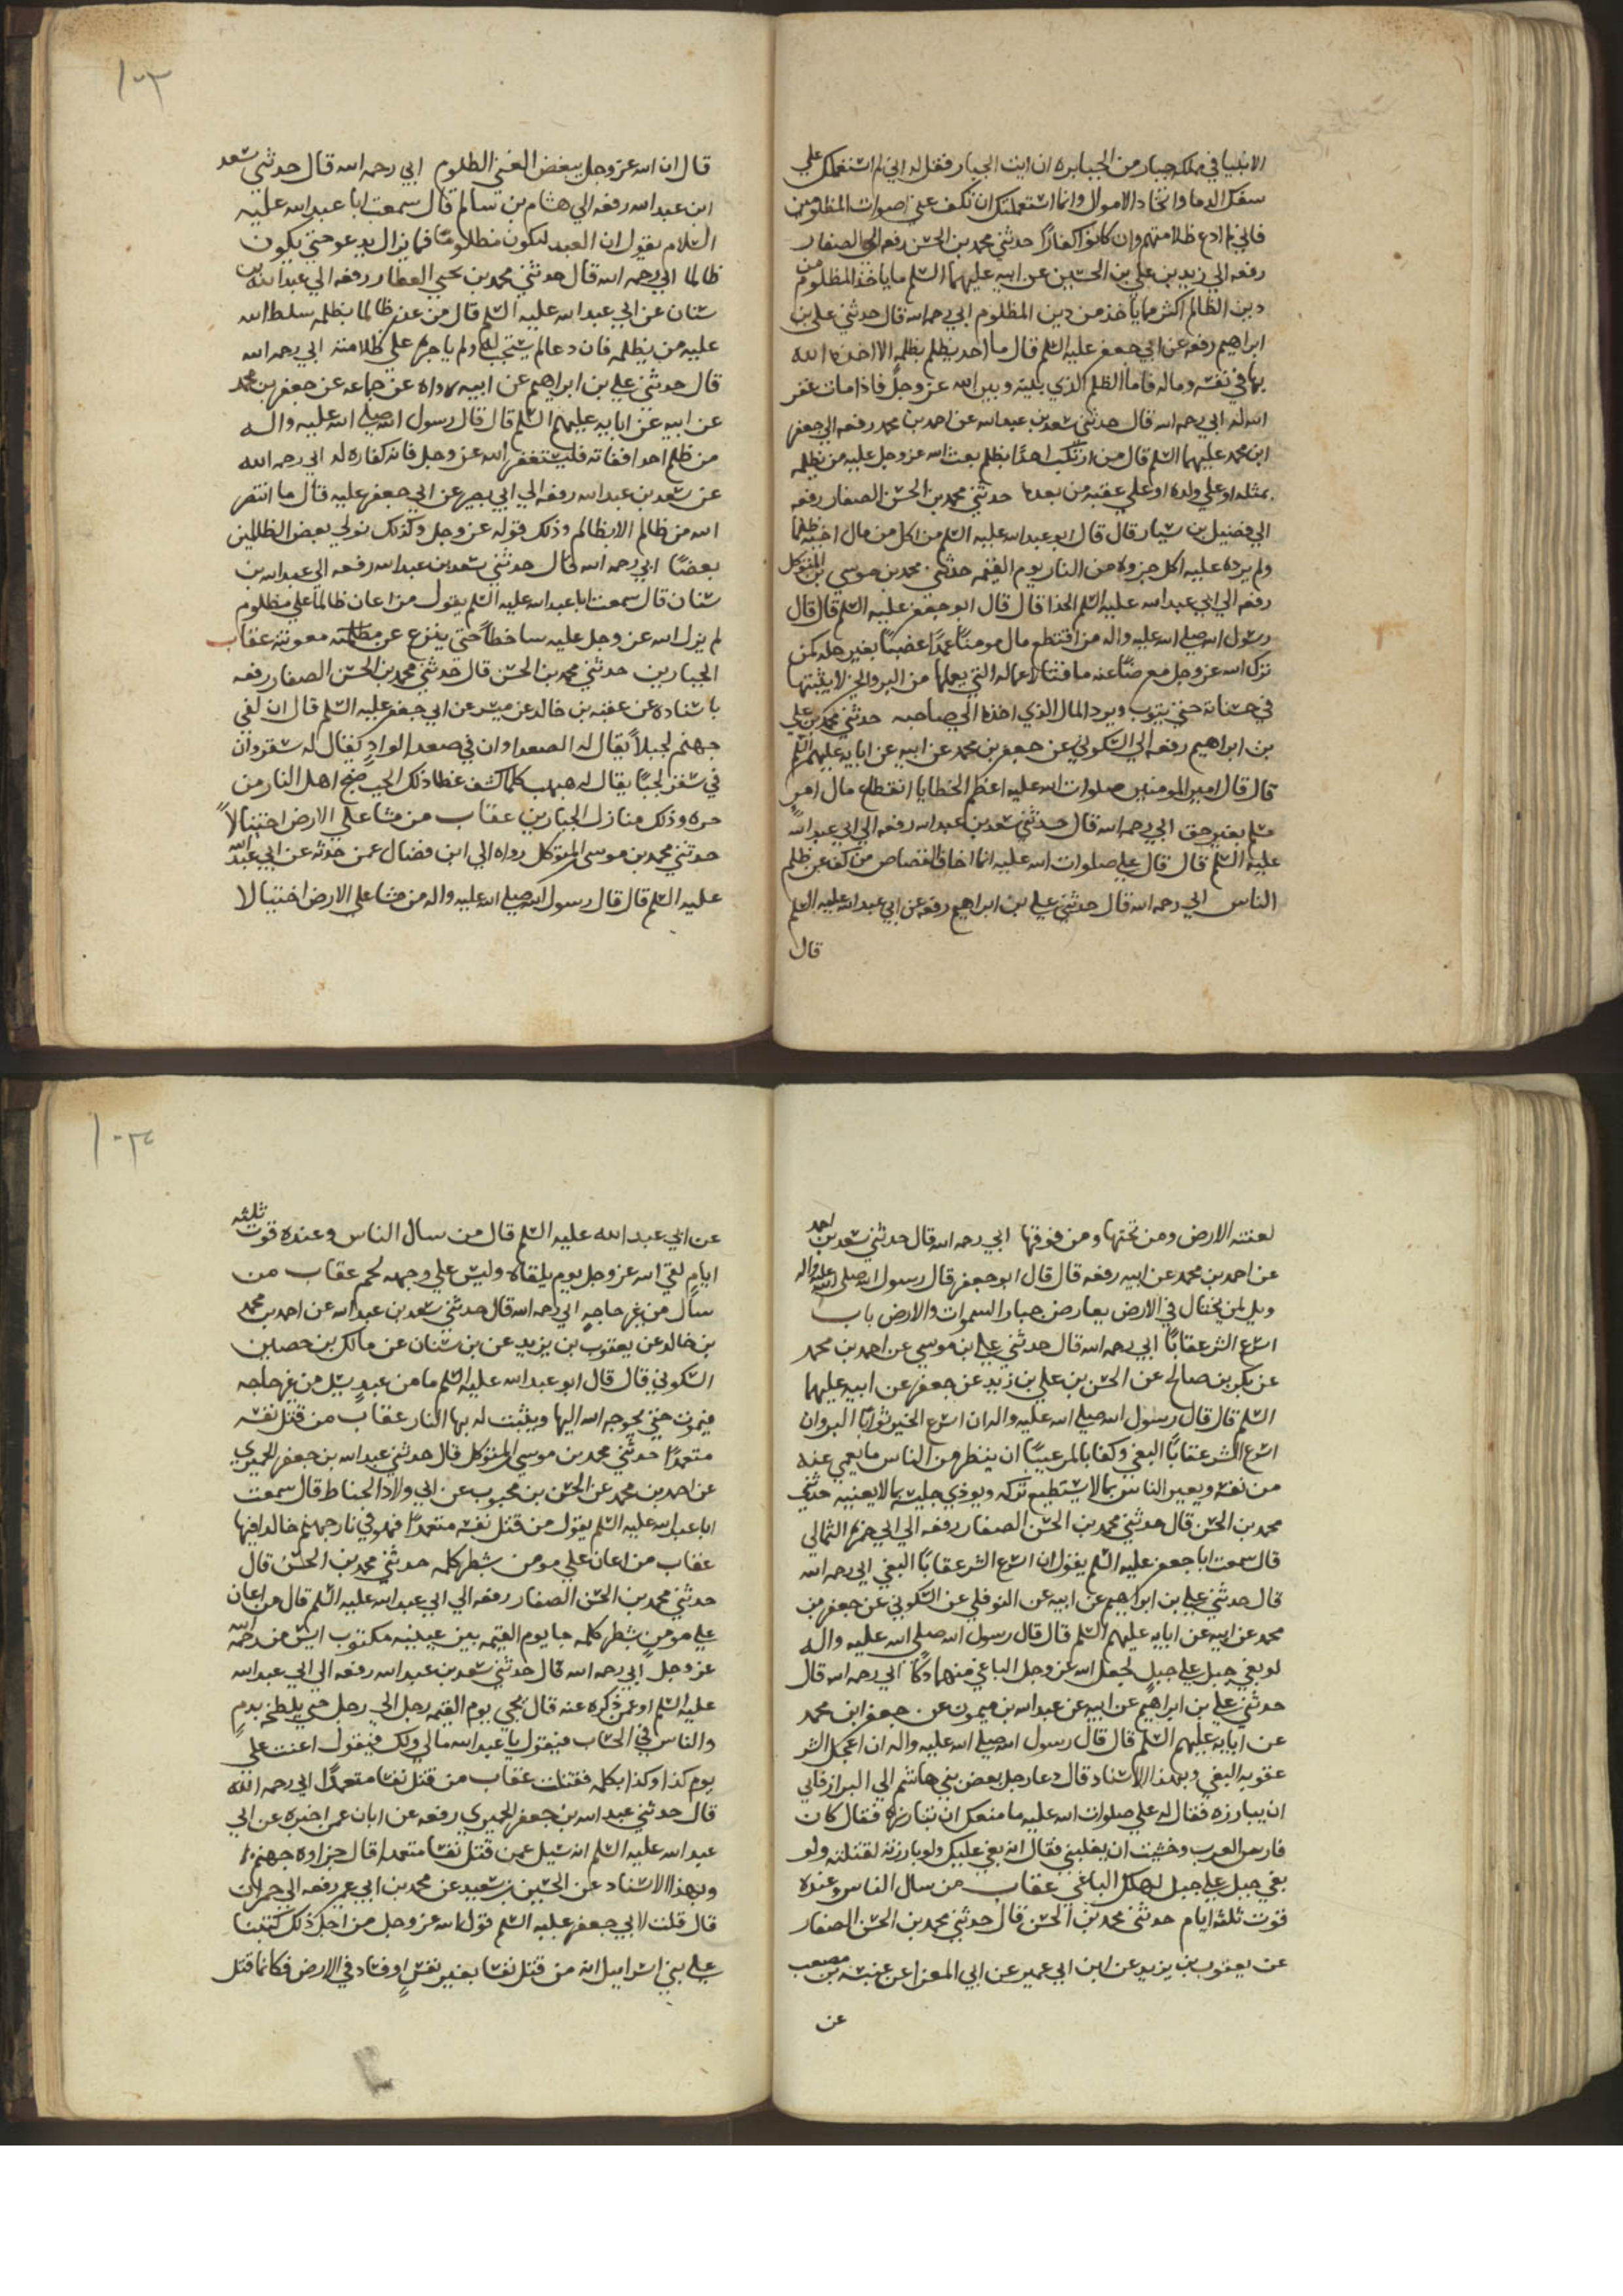 الانبيا في مملكه جبار من الجبابره ان ايت الجبار فقل له اني لم استعملك علي
سفك الدما واتخاد الاموال وانما استعملتك ان تكف عني اصوات المظلومين
فاني لم ادع ظلامتهم وان كانوا كفارًا حدثني محمد بن الحسن رفعه الى الصفار
رفعه الي زيد بن علي بن الحسين عن ابيه عليهما السلم ما ياخذ المظلوم من
دين الظالم اكثر مما ياخذ من دين المظلوم ابي رحمه الله قال حدثني علي بن
ابراهيم رفعه عن ابي جعفر عليه السلم قال ما احد يظلم بظلمه الا اخذه الله
بها في نفسه وماله فاما الظلم الذي بينه وبين الله عز وجل فاذا مات غفر
الله له ابي رحمه الله قال حدثني سعد بن عبد الله عن احمد بن محمد رفعه الي جعفر
ابن محمد عليهما السلم قال من ارتكب احدًا بظلم بعث الله عز وجل عليه من يظلمه
بمثله او علي ولده او علي عقبه من بعده حدثني محمد بن الحسن الصفار رفعه
الي فضيل بن سيار قال قال ابو عبد الله عليه السلم من اكل من مال اخيه ظلما
ولم يرده عليه اكل جزوه من النار يوم القيمه حدثني محمد بن موسي بن المتوكل
رفعه الي ابي عبد الله عليه السلم الحذا قال قال ابو جعفر عليه السلم قال قال
رسول الله صلي الله عليه واله من اقتطع مال مومنًا عمدًا غضبًا بغير حله لمن
تزل الله عز وجل معرضًا عنه ماقتًا لاعماله التي يعملها من البر والخير لا يثبتها
في حسناته حتي يتوب ويرد المال الذي اخذه الي صاحبه حدثني محمد بن علي
بن ابراهيم رفعه الي السكوني عن جعفر بن محمد عن ابيه عن ابايه عليهم السلم
قال قال امير المومنين صلوات الله عليه اعظم الخطايا انقطاع مال امرٍ
مسلم بغير حق ابي رحمه الله قال حدثني سعد بن عبد الله رفعه الي ابي عبد الله
عليه السلم قال قال علي صلوات الله عليه انما اخاف القصاص من كف عن ظلم
الناس ابي رحمه الله قال حدثني علي بن ابراهيم رفعه عن ابي عبد الله عليه السلم
قال
١٠٣
قال ان الله عز وجل يبغض الغني الظلوم ابي رحمه الله قال حدثني سعد
ابن عبد الله رفعه الي هشام بن سالم قال سمعت ابا عبد الله عليه
السلام يقول ان العبد ليكون مظلومًا فما يزال يدعو حتي يكون
ظالما ابي رحمه الله قال حدثني محمد بن يحيي العطار رفعه الي عبد الله بن
سنان عن ابي عبد الله عليه السلم قال من عذر ظالما بظلمه سلط الله
عليه من يظلمه فان دعا لم يستجب له ولم ياجره علي ظلامته ابي رحمه الله
قال حدثني علي بن ابراهيم عن ابيه رواه عن جماعه عن جعفر بن محمد
عن ابيه عن ابايه عليهم السلم قال قال رسول الله صلي الله عليه واله
من ظلم احدا ففاته فليستغفر الله عز وجل فانه كفاره له ابي رحمه الله
عن سعد بن عبد الله رفعه الي ابي بصير عن ابي جعفر عليه قال ما انتصر
الله من ظالم الا بظالم وذلك قوله عز وجل وكذلك نولي بعض الظالمين
بعضًا ابي رحمه الله قال حدثني سعد بن عبد الله رفعه الي عبد الله بن
سنان قال سمعت ابا عبد الله عليه السلم يقول من اعان ظالمًا علي مظلوم
لم يزل الله عز وجل عليه ساخطًا حتي ينزع عن مظلمته معونته عقاب
الجبارين حدثني محمد بن الحسن قال حدثني محمد بن الحسن الصفار رفعه
باسناده عن عقبه بن خالد عن ميسر عن ابي جعفر عليه السلم قال ان لفي
جهنم لجبلاً يقال له الصعدا وان في صعدا لوادٍ يقال له سقر وان
في سقر لجبًا يقال له هبهب كلما كشف غطا ذلك الجب ضج اهل النار من
حره وذلك منازل الجبارين عقاب من مشا علي الارض اختيالاً
حدثني محمد بن موسي المتوكل رواه الي ابن فضال عمن حدثه عن ابي عبد الله
عليه السلم قال قال رسول الله صلي الله عليه واله من مشا علي الارض اختيالا
لعنته الارض ومن تحتها ومن فوقها ابي رحمه الله قال حدثني سعد بن احمد
عن احمد بن محمد عن ابيه رفعه قال قال ابو جعفر قال رسول الله صلى الله عليه واله
ويل لمن يختال في الارض يعارض جبار السموات والارض باب
اسرع الشر عقابًا ابي رحمه الله قال حدثني علي بن موسي عن احمد بن محمد
عن بكر بن صالح عن الحسن بن علي بن زيد عن جعفر عن ابيه عليهما
السلم قال قال رسول الله صلي الله عليه واله ان اسرع الخير ثوابًا البر وان
اسرع الشر عقابًا البغي وكفا بالمر عيبًا ان ينظر من الناس ما يعمي عنه
من نفسه ويعير الناس بما لا يستطيع تركه ويوذي جليسه بما لا يعنيه حدثني
محمد بن الحسن قال حدثني محمد بن الحسن الصفار رفعه الي ابي حمزه الثمالي
قال سمعت ابا جعفر عليه السلم يقول ان اسرع الشر عقابًا البغي ابي رحمه الله
قال حدثني علي بن ابراهيم عن ابيه عن النوفلي عن السكوني عن جعفر بن
محمد عن ابيه عن ابايه عليهم السلم قال قال رسول الله صلي الله عليه واله
لو بغي جبل علي جبلٍ لجعل الله عز وجل الباغي منهما دكًا ابي رحمه الله قال
حدثني علي بن ابراهيم عن ابيه عن عبد الله بن ميمون عن جعفر ابن محمد
عن ابايه عليهم السلم قال قال رسول الله صلي الله عليه واله ان اعجل الشر
عقوبه البغي وبهذا الاسناد قال دعا رجل بعض بني هاشم الي البراز فابي
ان يبارزه فقال له علي صلوات الله عليه ما منعك ان تبارزه فقال كان
فارس العرب وخشيت ان يغلبني فقال انه بغي عليك ولو بارزته لقتلته ولو
بغي جبل علي جبل لهلك الباغي عقاب من سال الناس وعنده
قوت ثلثه ايام حدثني محمد بن الحسن قال حدثني محمد بن الحسن الصفار
عن يعقوب بن يزيد عن ابن ابي عمير عن ابي المعزا عن عنبسه بن مصعب
عن
١٠٤
عن ابي عبد الله عليه السلم قال من سال الناس وعنده قوت ثلثه
ايام لقي الله عز وجل يوم يلقاه وليس علي وجهه لحم عقاب من
سال من غير حاجهٍ ابي رحمه الله قال حدثني سعد بن عبد الله عن احمد بن محمد
بن خالد عن يعقوب بن يزيد عن بن سنان عن مالك بن حصين
السكوني قال قال ابو عبد الله عليه السلم ما من عبدٍ يسل من غير حاجه
فيموت حتي يحوجه الله اليها ويثبت له بها النار عقاب من قتل نفسه
متعمدًا حدثني محمد بن موسي المتوكل قال حدثني عبد الله بن جعفر الحميري
عن احمد بن محمد عن الحسن بن محبوب عن ابي ولاد الحناط قال سمعت
ابا عبد الله عليه السلم يقول من قتل نفسه متعمدًا فهو في نار جهنم خالدا فيها
عقاب من اعان علي مومن بشطر كلمه حدثني محمد بن الحسن قال
حدثني محمد بن الحسن الصفار رفعه الي ابي عبد الله عليه السلم قال من اعان
علي مومنٍ بشطر كلمه جا يوم القيمه بين عينيه مكتوب ايس من رحمه الله
عز وجل ابي رحمه الله قال حدثني سعد بن عبد الله رفعه الي ابي عبد الله
عليه السلم او عمن ذكره عنه قال يجي يوم القيمه رجل الي رجل حتي يلطخه بدمٍ
والناس في الحساب فيقول يا عبد الله مالي ولك فيقول اعنت علي
يوم كذا وكذا بكلمه فقتلت عقاب من قتل نفسا متعمدًا ابي رحمه الله
قال حدثني عبد الله بن جعفر الحميري رفعه عن ابان عمن اخبره عن ابي
عبد الله عليه السلم انه سيل عمن قتل نفسا متعمدا قال جزاوه جهنم
وبهذا الاسناد عن الحسين بن سعيد عن محمد بن ابي عمير رفعه الي حمران
قال قلت لابي جعفر عليه السلم قول الله عز وجل من اجل ذلك كتبنا
علي بني اسراييل انه من قتل نفسا بغير نفسٍ او فساد في الارض فكانما قتل